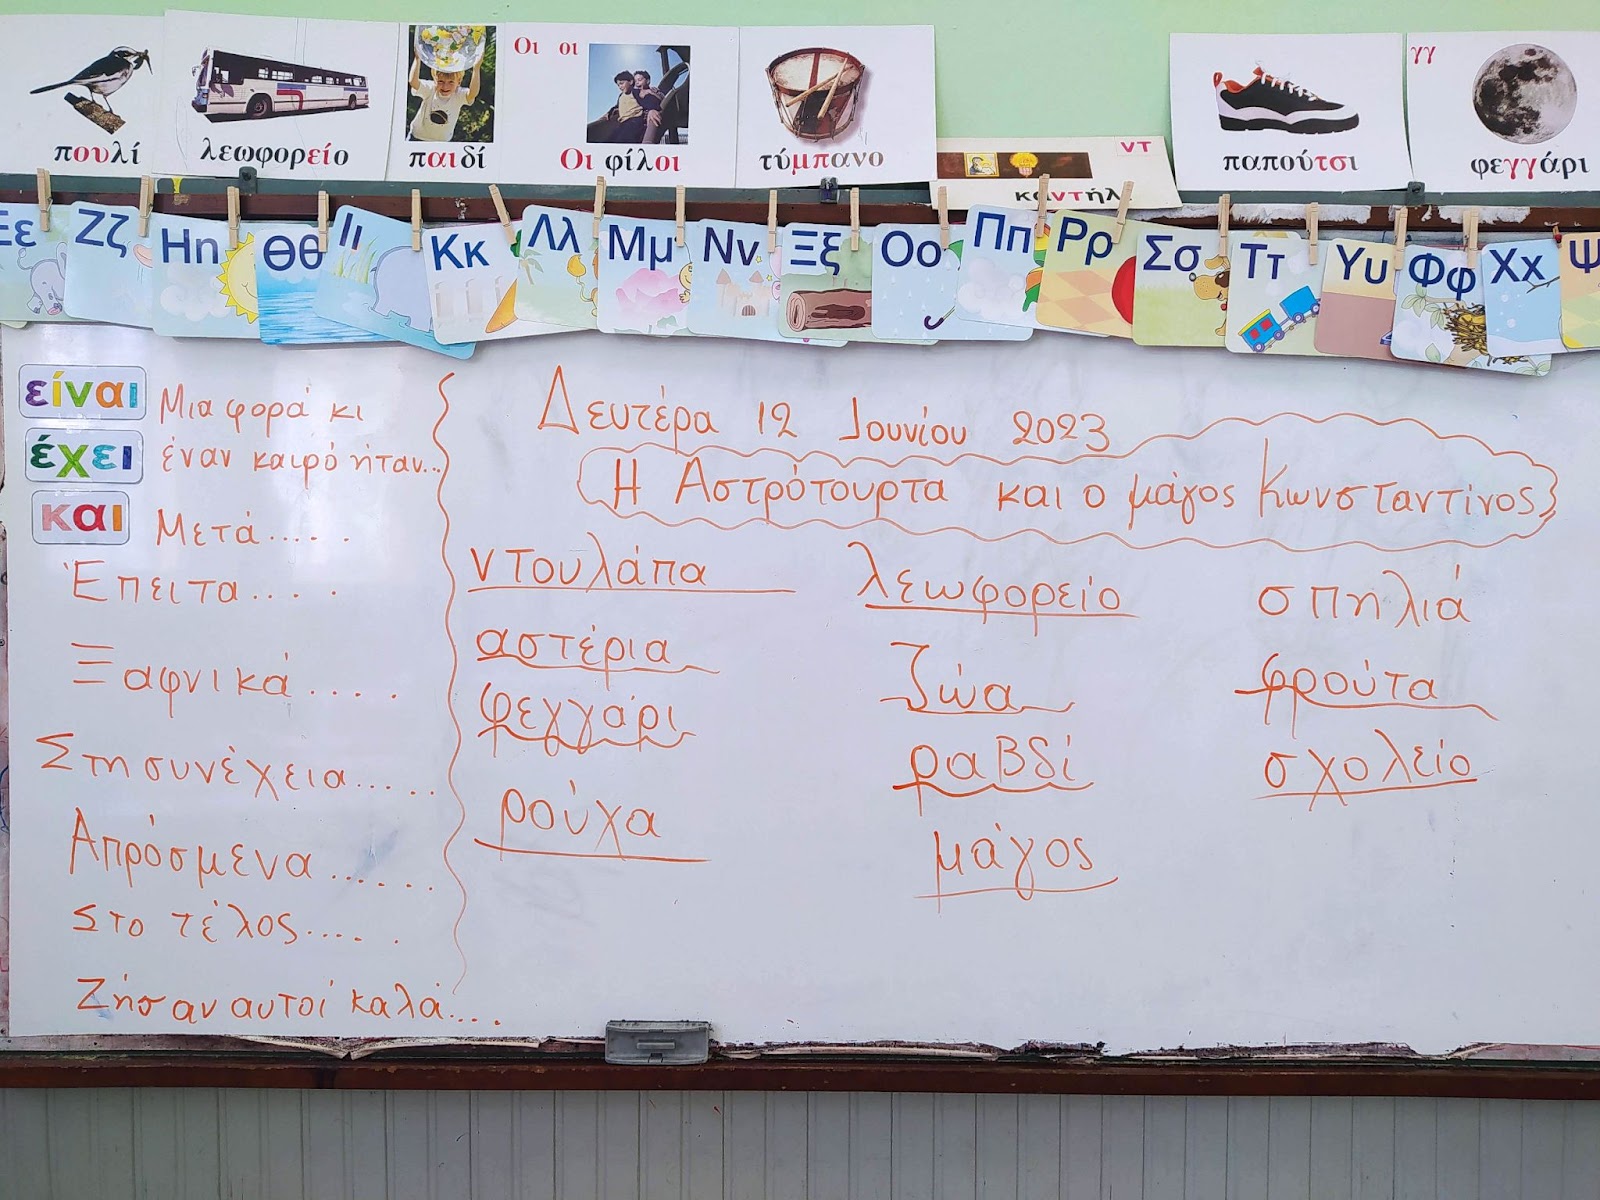 πουλί
λεωφορείο
παιδί
Οι οι
Οι φίλοι
τύμπανο
ντ
καντήλ
παπούτσι
γγ
φεγγάρι
Εε
Ζζ
Ηη
Θθ
Ιι
Κκ
Λλ
Μμ
Νν
Ξξ
Οο
Ππ
Ρρ
Σσ
Ττ
Υυ
Φφ
Χχ
Ψ
είναι
έχει
και
Μια φορά κι
έναν καιρό ήταν...
Μετά.....
Έπειτα....
Ξαφνικά.....
Στη συνέχεια.....
Απρόσμενα......
Στο τέλος.....
Ζήσαν αυτοί καλά....
Δευτέρα 12 Ιουνίου 2023
Η Αστρότουρτα και ο μάγος Κωνσταντίνος
ντουλάπα
αστέρια
φεγγάρι
ρούχα
λεωφορείο
ζώα
ραβδί
μάγος
σπηλιά
φρούτα
σχολείο